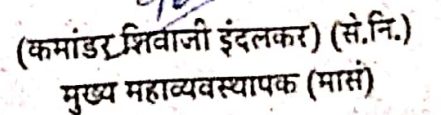 (कमांडर शिवाजी इंदलकर) (से.नि.)
मुख्य महाव्यवस्थापक (मासं)